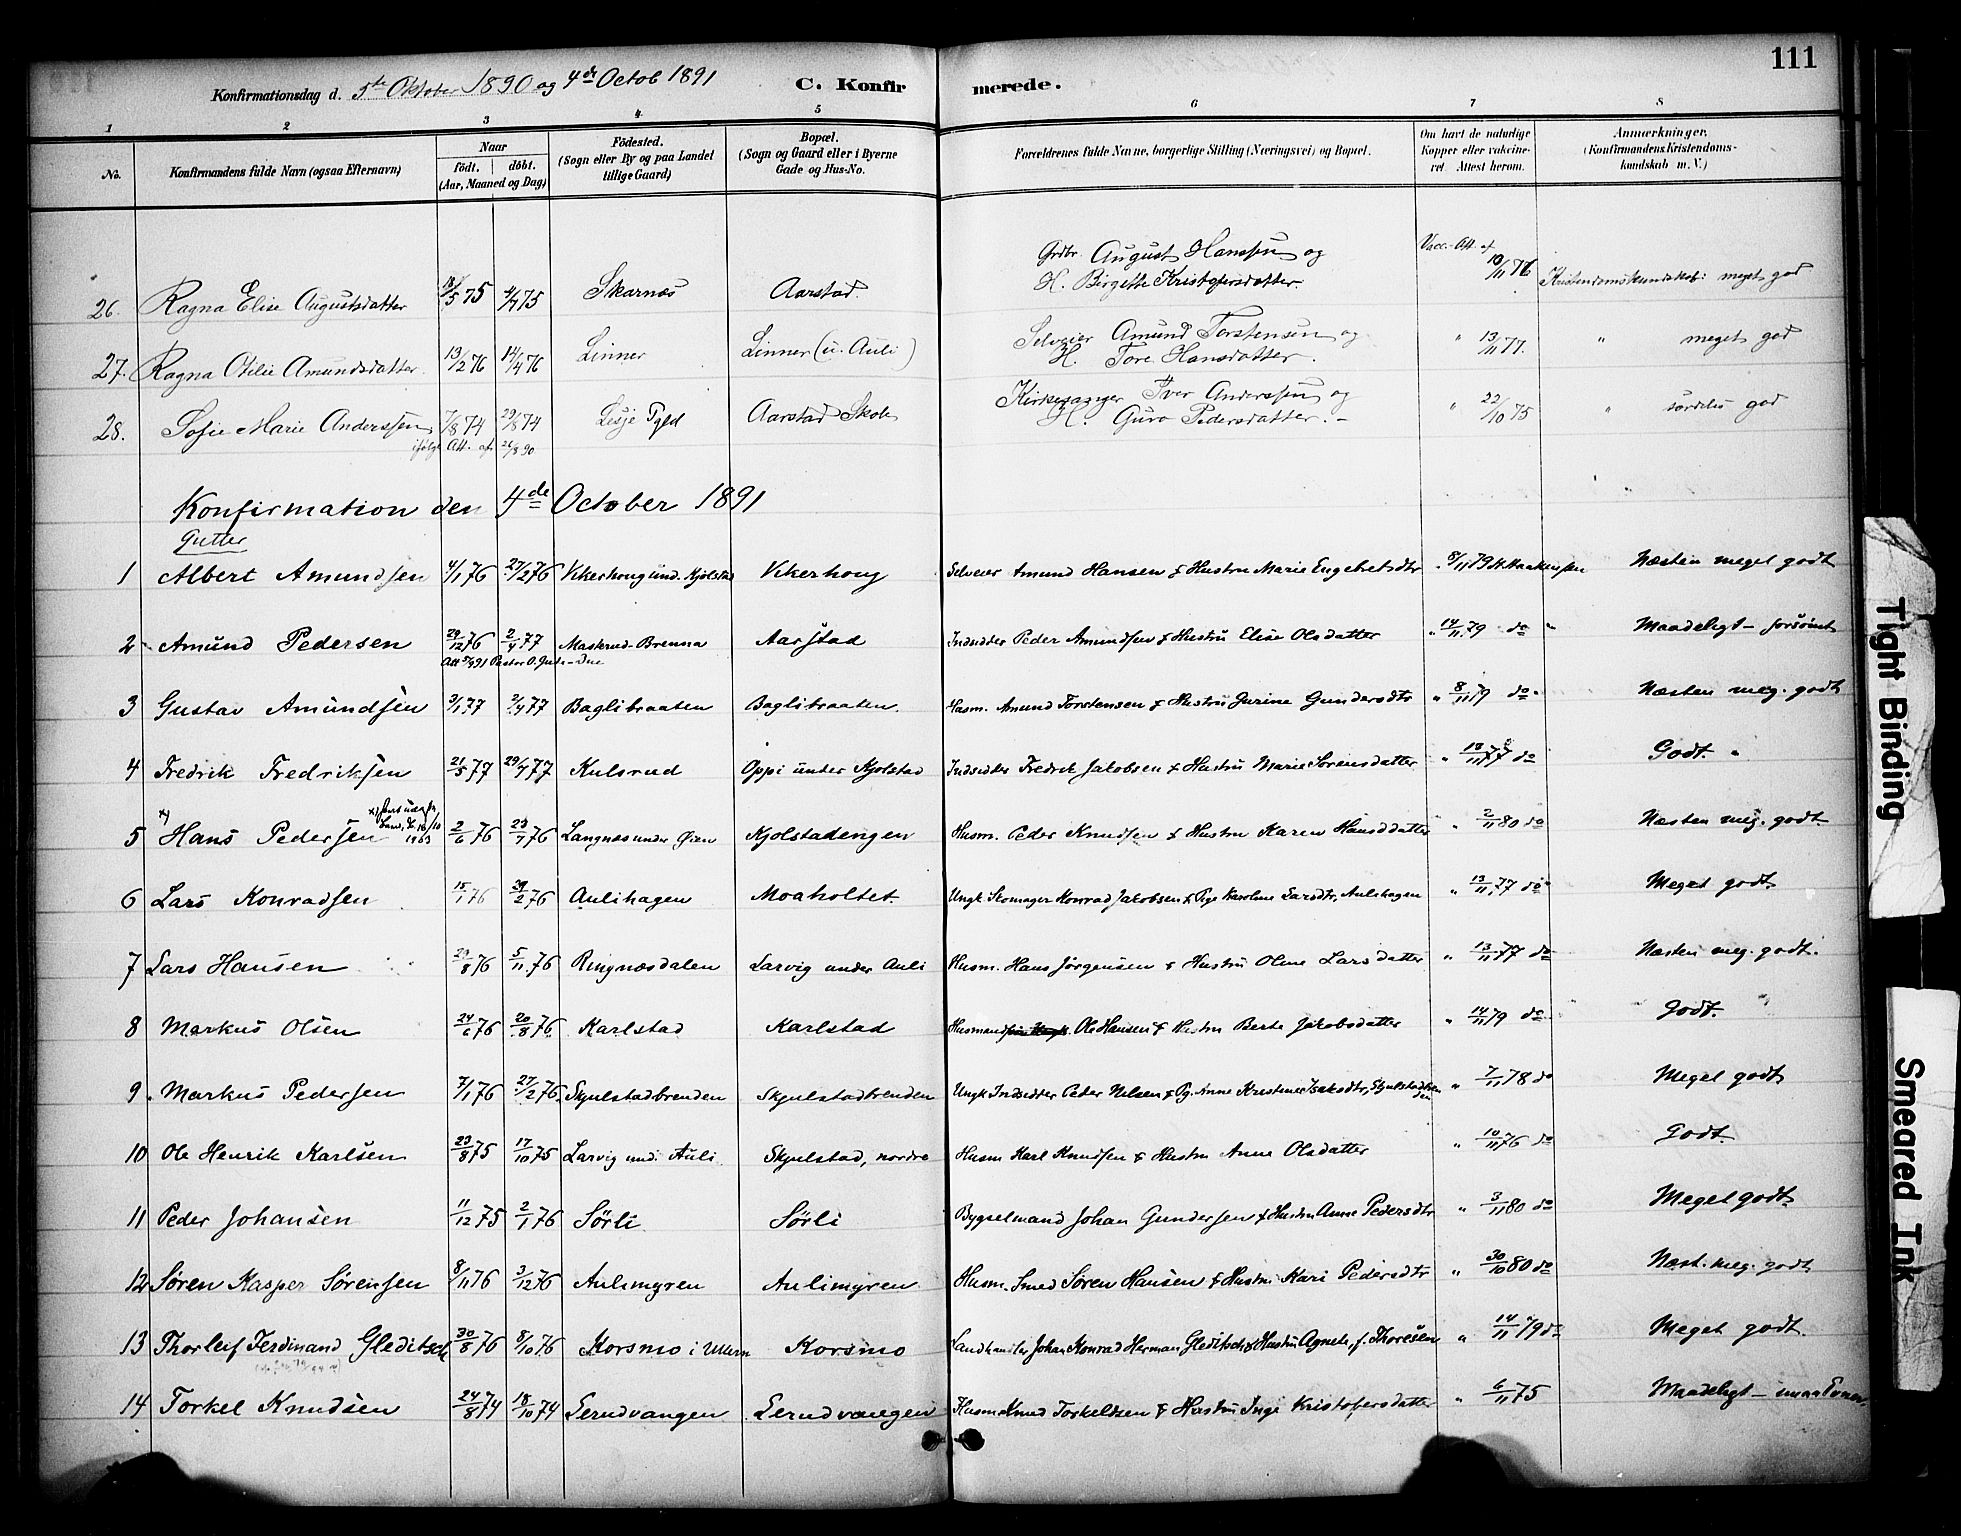 111
Konfirmationsdag d. 5te Oktober 1890 og 4de Octob 1891 C. Konfirmerede.
1 2 3 4 5 6 7 8
No. Konfirmandens fulde Navn (ogsaa Efternavn) Naar födt. döbt. (Aar, Maaned og Dag) Födested. (Sogn eller By og paa Landet tillige Gaard) Bopæl. (Sogn og Gaard eller i Byerne Gade og Hus-No. Forældrenes fulde Navne, borgerlige Stilling (Næringsvei) og Bopæl. Om havt de naturlige Kopper eller vakcineret Attest herom. Anmærkninger. (Konfirmandens Kristendomskundskab m. V.)
26. Ragna Elise Augustsdatter 18/5 75 4/7 75 Skarnæs Aarstad. Grdbr. August Hanssen og H. Birgithe Kristofersdatter. Vacc.-Att. af 10/11 76 Kristendomskundskab: meget god
27. Ragna Otilie Amundsdatter. 13/2 76 14/4 76 Linner Linner (u. Auli) Selveier Amund Torstensen og H. Tore Hansdatter. " 13/11 77. " meget god
28. Sofie Marie Anderssen 7/8 74 29/8 74 Lesje Pgld Aarstad Skole Kirkesanger Iver Anderssen og H. Guro Pedersdatter. - " 22/10 75 " særdeles god
ifølge Att. af 26/8 90
Konfirmation den 4de October 1891
Gutter
1 Albert Amundsen 4/1 76 27/2 76 Kkerhoug und. Kjolstad Kkerhoug Selveier Amund Hansen & Hustru Marie Engebretsdtr " 8/11 79 H. Haakensen Næsten meget godt
2 Amund Pedersen 29/12 76 2/4 77 Maskerud-Brenna Aarstad Indsidder Peder Amundsen & Hustru Elise Olsdatter " 14/11 79 do " Maadeligt - forsömt
3 Gustav Amundsen 3/1 77 2/4 77 Baglibraaten Baglibraaten. Husm. Amund Torstensen & Hustru Jurine Gundersdtr " 8/11 79 do " Næsten meg. godt
4 Fredrik Fredriksen 21/5 77 29/7 77 Kulsrud Oppi under Kjolstad Indsidder Fredrik Jakobsen & Hustru Marie Sørensdatter " 18/11 77 do Godt. "
5 x) Hans Pedersen 2/6 76 23/7 76 Langnæs under Øien Kjolstadengen Husm. Peder Knudsen & Hustru Karen Hansdatter " 2/11 80 do Næsten meg. godt.
6 Lars Konradsen 15/1 76 29/2 76 Aulihagen Moaholtet. Ungk. Skomager Konrad Jakobsen & Pige Karoline Larsdtr, Aulihagen " 13/11 77 do Meget godt
7 Lars Hansen 29/8 76 5/11 76 Ringnæsdalen Larvig under Auli Husm. Hans Jørgensen & Hustru Oline Larsdatter " 13/11 77 do Næsten meg. godt.
8 Markus Olsen 24/6 76 20/8 76 Karlstad Karlstad Husmand Ole Hansen & Hustru Berte Jakobsdatter " 14/11 79 do Godt.
9. Markus Pedersen 7/1 76 27/2 76. Skjulstadbrenden Skjulstadbrenden Ungk. Indsidder Peder Nilsen & Pg. Anne Kristine Isaksdtr, Skjulstadbrenden " 7/11 78 do Meget godt
10 Ole Henrik Karlsen 23/8 75 17/10 75 Larvig und. Auli Skjulstad, nordre Husm. Karl Knudsen & Hustru Anne Olsdatter " 10/11 76 do Godt.
11 Peder Johansen 11/12 75 2/1 76 Sörli Sörli Bygselmand Johan Gundersen & Hustru Anne Pedersdtr " 3/11 80 do Meget godt
12 Søren Kasper Sørensen 8/11 76 3/12 76 Aulimyren Aulimyren Husm. Smed Søren Hansen & Hustru Kari Pedersdtr " 30/10 80 do Næst. meg. godt
13 Thorleif Ferdinand Gleditsch 30/8 76 8/10 76 Korsmo i Ullern Korsmo Landhandler Johan Konrad Herman Gleditsch & Hustru Agnete, f. Thoresen " 14/11 79 do Meget godt.
14 Torkel Knudsen 24/8 74 18/10 74 Lerudvangen Lerudvangen Husm. Knud Torkeldsen & Hustru Inge Kristofersdatter " 6/11 75 Maadeligt - smaa Evner.
Tight Binding
Smeared Ink